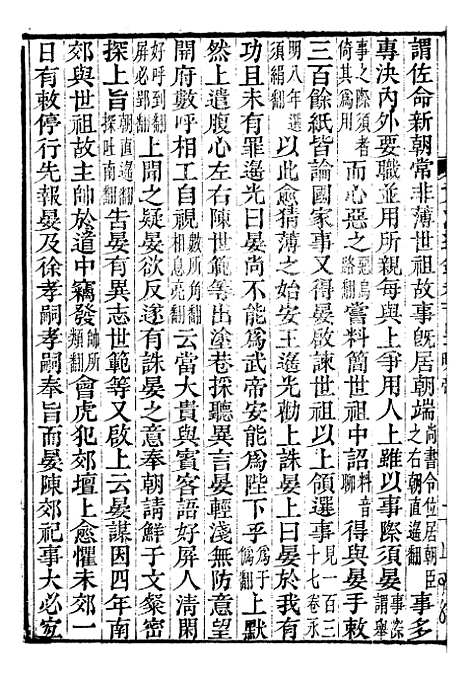 謂佐命新朝常非薄世祖故事旣居朝端尚書令位居朝臣之右朝直遙翻事多
專決內外要職並用所親每與上爭用人上雖以事際須晏事際謂舉
事之際須者倚其爲用而心惡之惡烏路翻嘗料簡世祖中詔料音聊得與晏手敕
三百餘紙皆論國家事又得晏啟諫世祖以上領選事見一百三十七卷永
明八年選須絹翻以此愈猜薄之始安王遙光勸上誅晏上曰晏於我有
功且未有罪遙光曰晏尚不能爲武帝安能爲陛下乎爲于僞翻上默
然上遣腹心左右陳世範等出塗巷採聽異言晏輕淺無防意望
開府數呼相工自視數所角翻相息亮翻云當大貴與賓客語好屏人清閒
好呼到翻屏必郢翻上聞之疑晏欲反遂有誅晏之意奉朝請鮮于文粲密
探上旨朝直遙翻探吐南翻告晏有異志世範等又啟上云晏謀因四年南
郊與世祖故主帥於道中竊發帥所類翻會虎犯郊壇上愈懼未郊一
日有敕停行先報晏及徐孝嗣孝嗣奉旨而晏陳郊祀事大必宜